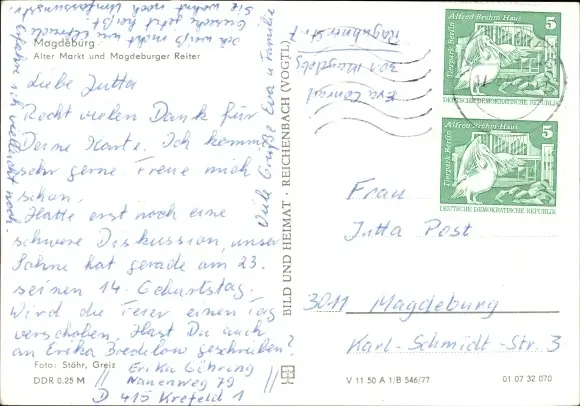 Magdeburg
Alter Markt und Magdeburger Reiter
Liebe Jutta
Recht vielen Dank für
Deine Karte. Ich komme
sehr gerne. Freue mich
schon.
Hatte erst noch eine
schwere Diskussion, unser
Sohne hat gerade am 23.
seinen 14. Geburtstag.
Wird die Feier einen Tag
verschoben. Hast Du auch
an Erika Bredelow geschrieben?
Erika Gühring
Nanenweg 79
D 415 Krefeld 1
Ich weiß nicht wie Ehrude
Gutsche jetzt heißt
Sie wohnt noch
erfahre ich vielleicht noch.
Viele Grüße Eva u Familie
Foto: Stöhr, Greiz
DDR 0.25 M
BILD UND HEIMAT · REICHENBACH (VOGTL)
Eva Conrad
301 Magdebg
Frau
Jutta Post
3011 Magdeburg
Karl-Schmidt-Str. 3
V 11 50 A 1/B 546/77
01 07 32 070
Alfred Brehm Haus
Tierpark Berlin
5
DEUTSCHE DEMOKRATISCHE REPUBLIK
Alfred Brehm Haus
Tierpark Berlin
5
DEUTSCHE DEMOKRATISCHE REPUBLIK